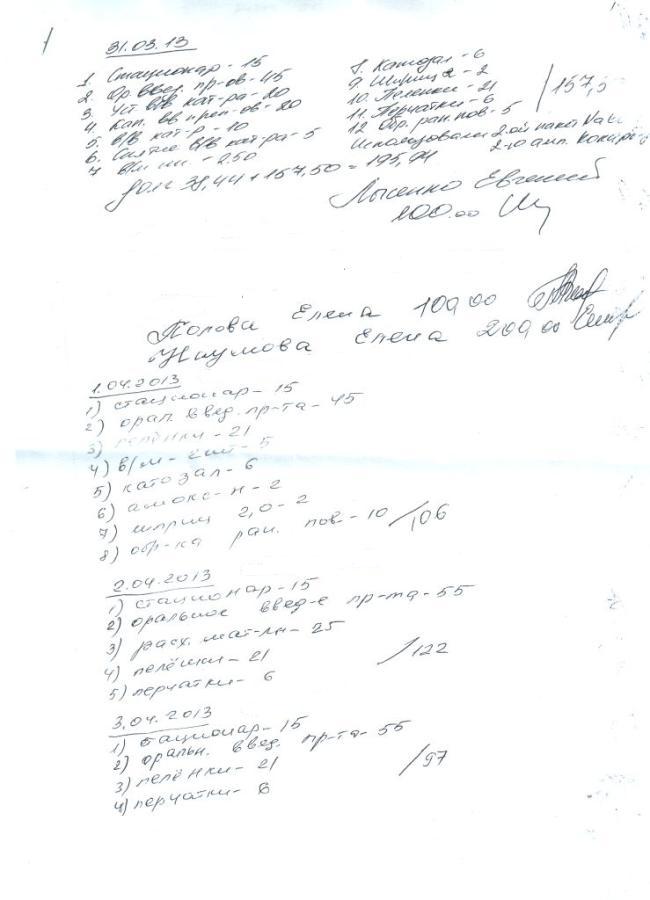 31.03.13
1. Стационар - 15
2. Ор. введ. пр-ов - 45
3. Уст В/В кат-ра - 20
4. Кап. вв преп-ов - 20
5. В/В кат-р - 10
6. Снятие В/В кат-ра - 5
7. В/м ин. - 2,50
8. Катозал - 6
9. Шприц - 2
10. Пеленки - 21
11. Перчатки - 6
12. Обр. ран. пов - 5
/157,5
Использовали 2-ой пакет
2-ю амп.
Долг 38,44 + 157,50 = 195,94
Лысенко Евгений
100.00
Попова Елена 100 00
Наумова Елена 200 00
1.04.2013
1) стационар - 15
2) орал. введ. пр-та - 45
3) пелёнки - 21
4) в/м - 5
5) катозал - 6
6) амокс-н - 2
7) шприц 2,0 - 2
8) обр-ка ран. пов - 10
/106
2.04.2013
1) стационар - 15
2) оральное введ-е пр-та - 55
3) расх. мат-лы - 25
4) пелёнки - 21
5) перчатки - 6
/122
3.04.2013
1) стационар - 15
2) оральн. введ. пр-та - 55
3) пелёнки - 21
4) перчатки - 6
/97